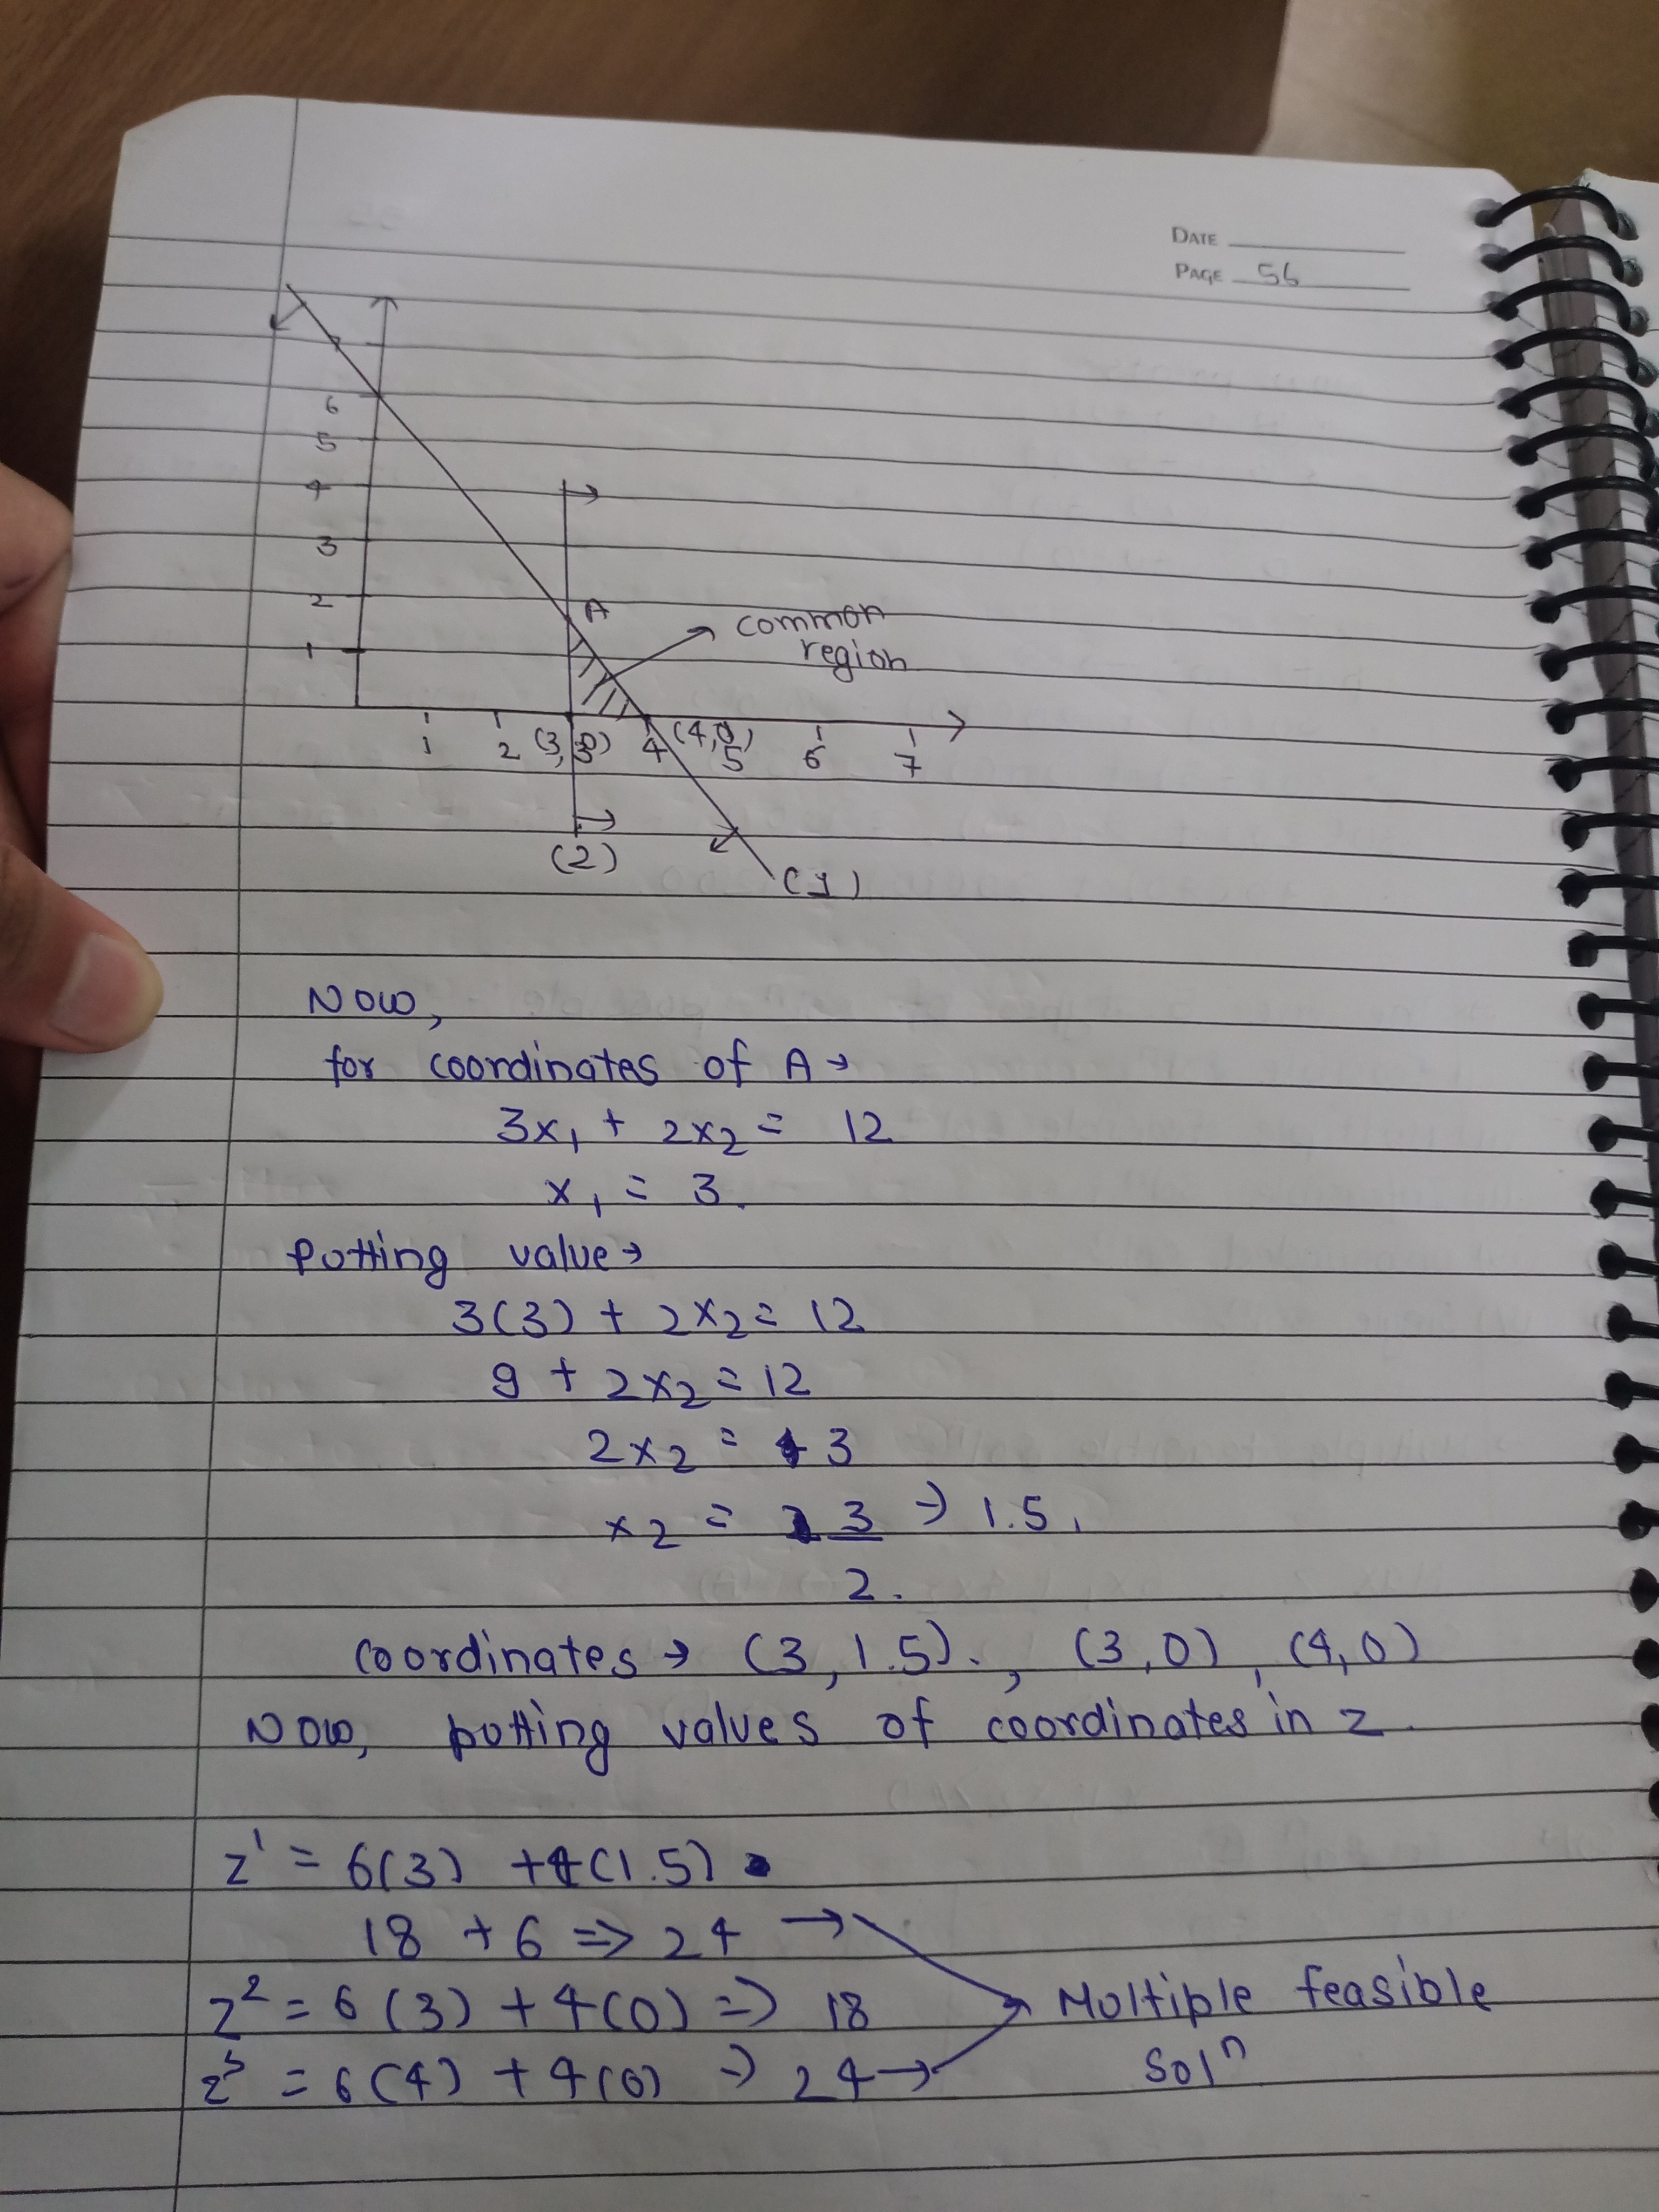 DATE
PAGE 56
6
5
4
3
2
1
A
common
region
1 2 (3,0) 3 4 (4,0) 5 6 7
(2)
(1)
Now,
for coordinates of A →
3x₁ + 2x₂ = 12
x₁ = 3.
Putting value →
3(3) + 2x₂ = 12
9 + 2x₂ = 12
2x₂ = 3
x₂ = 3/2 ⇒ 1.5,
coordinates → (3,1.5)., (3,0), (4,0)
Now, putting values of coordinates in z.
z¹ = 6(3) + 4(1.5)
18 + 6 => 24 →
z² = 6(3) + 4(0) => 18
z³ = 6(4) + 4(0) => 24 →
Multiple feasible
Solⁿ